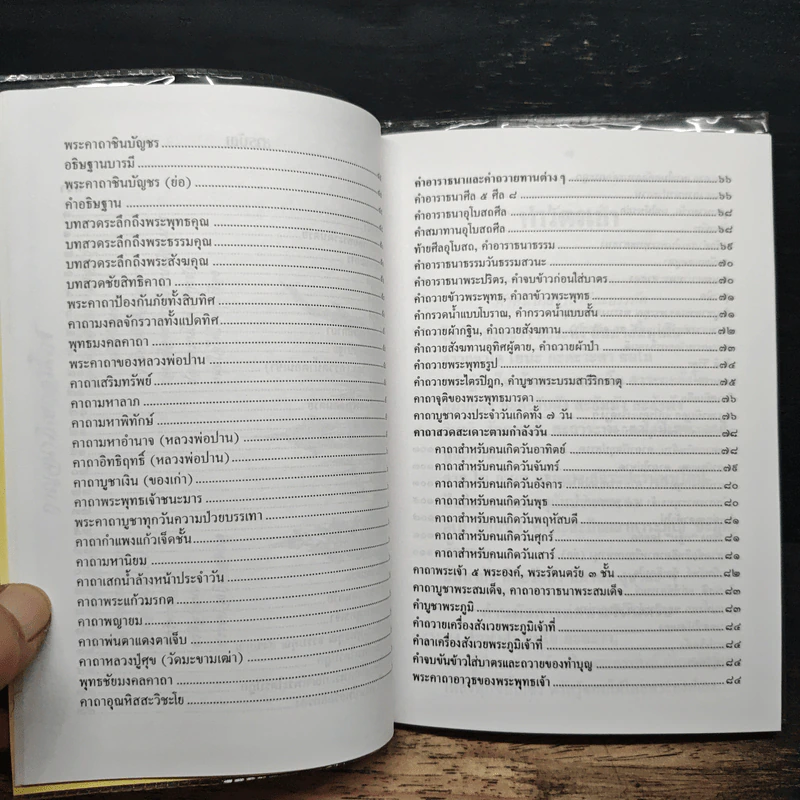 พระคาถาชินบัญชร
อธิษฐานบารมี
พระคาถาชินบัญชร (ย่อ)
คำอธิษฐาน
บทสวดระลึกถึงพระพุทธคุณ
บทสวดระลึกถึงพระธรรมคุณ
บทสวดระลึกถึงพระสังฆคุณ
บทสวดชัยสิทธิคาถา
พระคาถาป้องกันภัยทั้งสิบทิศ
คาถามงคลจักรวาลทั้งแปดทิศ
พุทธมงคลคาถา
พระคาถาของหลวงพ่อปาน
คาถาเสริมทรัพย์
คาถามหาลาภ
คาถามหาพิทักษ์
คาถามหาอำนาจ (หลวงพ่อปาน)
คาถาอิทธิฤทธิ์ (หลวงพ่อปาน)
คาถาบูชาเงิน (ของเก่า)
คาถาพระพุทธเจ้าชนะมาร
พระคาถาบูชาทุกวันความป่วยบรรเทา
คาถากำแพงแก้วเจ็ดชั้น
คาถามหานิยม
คาถาเสกน้ำล้างหน้าประจำวัน
คาถาพระแก้วมรกต
คาถาพญายม
คาถาพ่นตาแดงตาเจ็บ
คาถาหลวงปู่ศุข (วัดมะขามเฒ่า)
พุทธชัยมงคลคาถา
คาถาอุณหิสสะวิชะโย
คำอาราธนาและคำถวายทานต่าง ๆ ๖๖
คำอาราธนาศีล ๕ ศีล ๘ ๖๖
คำอาราธนาอุโบสถศีล ๖๘
คำสมาทานอุโบสถศีล ๖๘
ท้ายศีลอุโบสถ, คำอาราธนาธรรม ๖๙
คำอาราธนาธรรมวันธรรมสวนะ ๗๐
คำอาราธนาพระปริตร, คำจบข้าวก่อนใส่บาตร ๗๐
คำถวายข้าวพระพุทธ, คำลาข้าวพระพุทธ ๗๑
คำกรวดน้ำแบบโบราณ, คำกรวดน้ำแบบสั้น ๗๑
คำถวายผ้ากฐิน, คำถวายสังฆทาน ๗๒
คำถวายสังฆทานอุทิศผู้ตาย, คำถวายผ้าป่า ๗๓
คำถวายพระพุทธรูป ๗๔
คำถวายพระไตรปิฎก, คำบูชาพระบรมสารีริกธาตุ ๗๕
คาถาจุติของพระพุทธมารดา ๗๖
คำบูชาดวงประจำวันเกิดทั้ง ๗ วัน ๗๖
คาถาสวดสะเดาะตามกำลังวัน ๗๘
คาถาสำหรับคนเกิดวันอาทิตย์ ๗๘
คาถาสำหรับคนเกิดวันจันทร์ ๗๙
คาถาสำหรับคนเกิดวันอังคาร ๘๐
คาถาสำหรับคนเกิดวันพุธ ๘๐
คาถาสำหรับคนเกิดวันพฤหัสบดี ๘๑
คาถาสำหรับคนเกิดวันศุกร์ ๘๑
คาถาสำหรับคนเกิดวันเสาร์ ๘๑
คาถาพระเจ้า ๕ พระองค์, พระรัตนตรัย ๓ ชั้น ๘๒
คาถาบูชาพระสมเด็จ, คาถาอาราธนาพระสมเด็จ ๘๓
คำบูชาพระภูมิ ๘๓
คำถวายเครื่องสังเวยพระภูมิเจ้าที่ ๘๔
คำลาเครื่องสังเวยพระภูมิเจ้าที่ ๘๔
คำจบขันข้าวใส่บาตรและถวายของทำบุญ ๘๔
พระคาถาอาวุธของพระพุทธเจ้า ๘๔